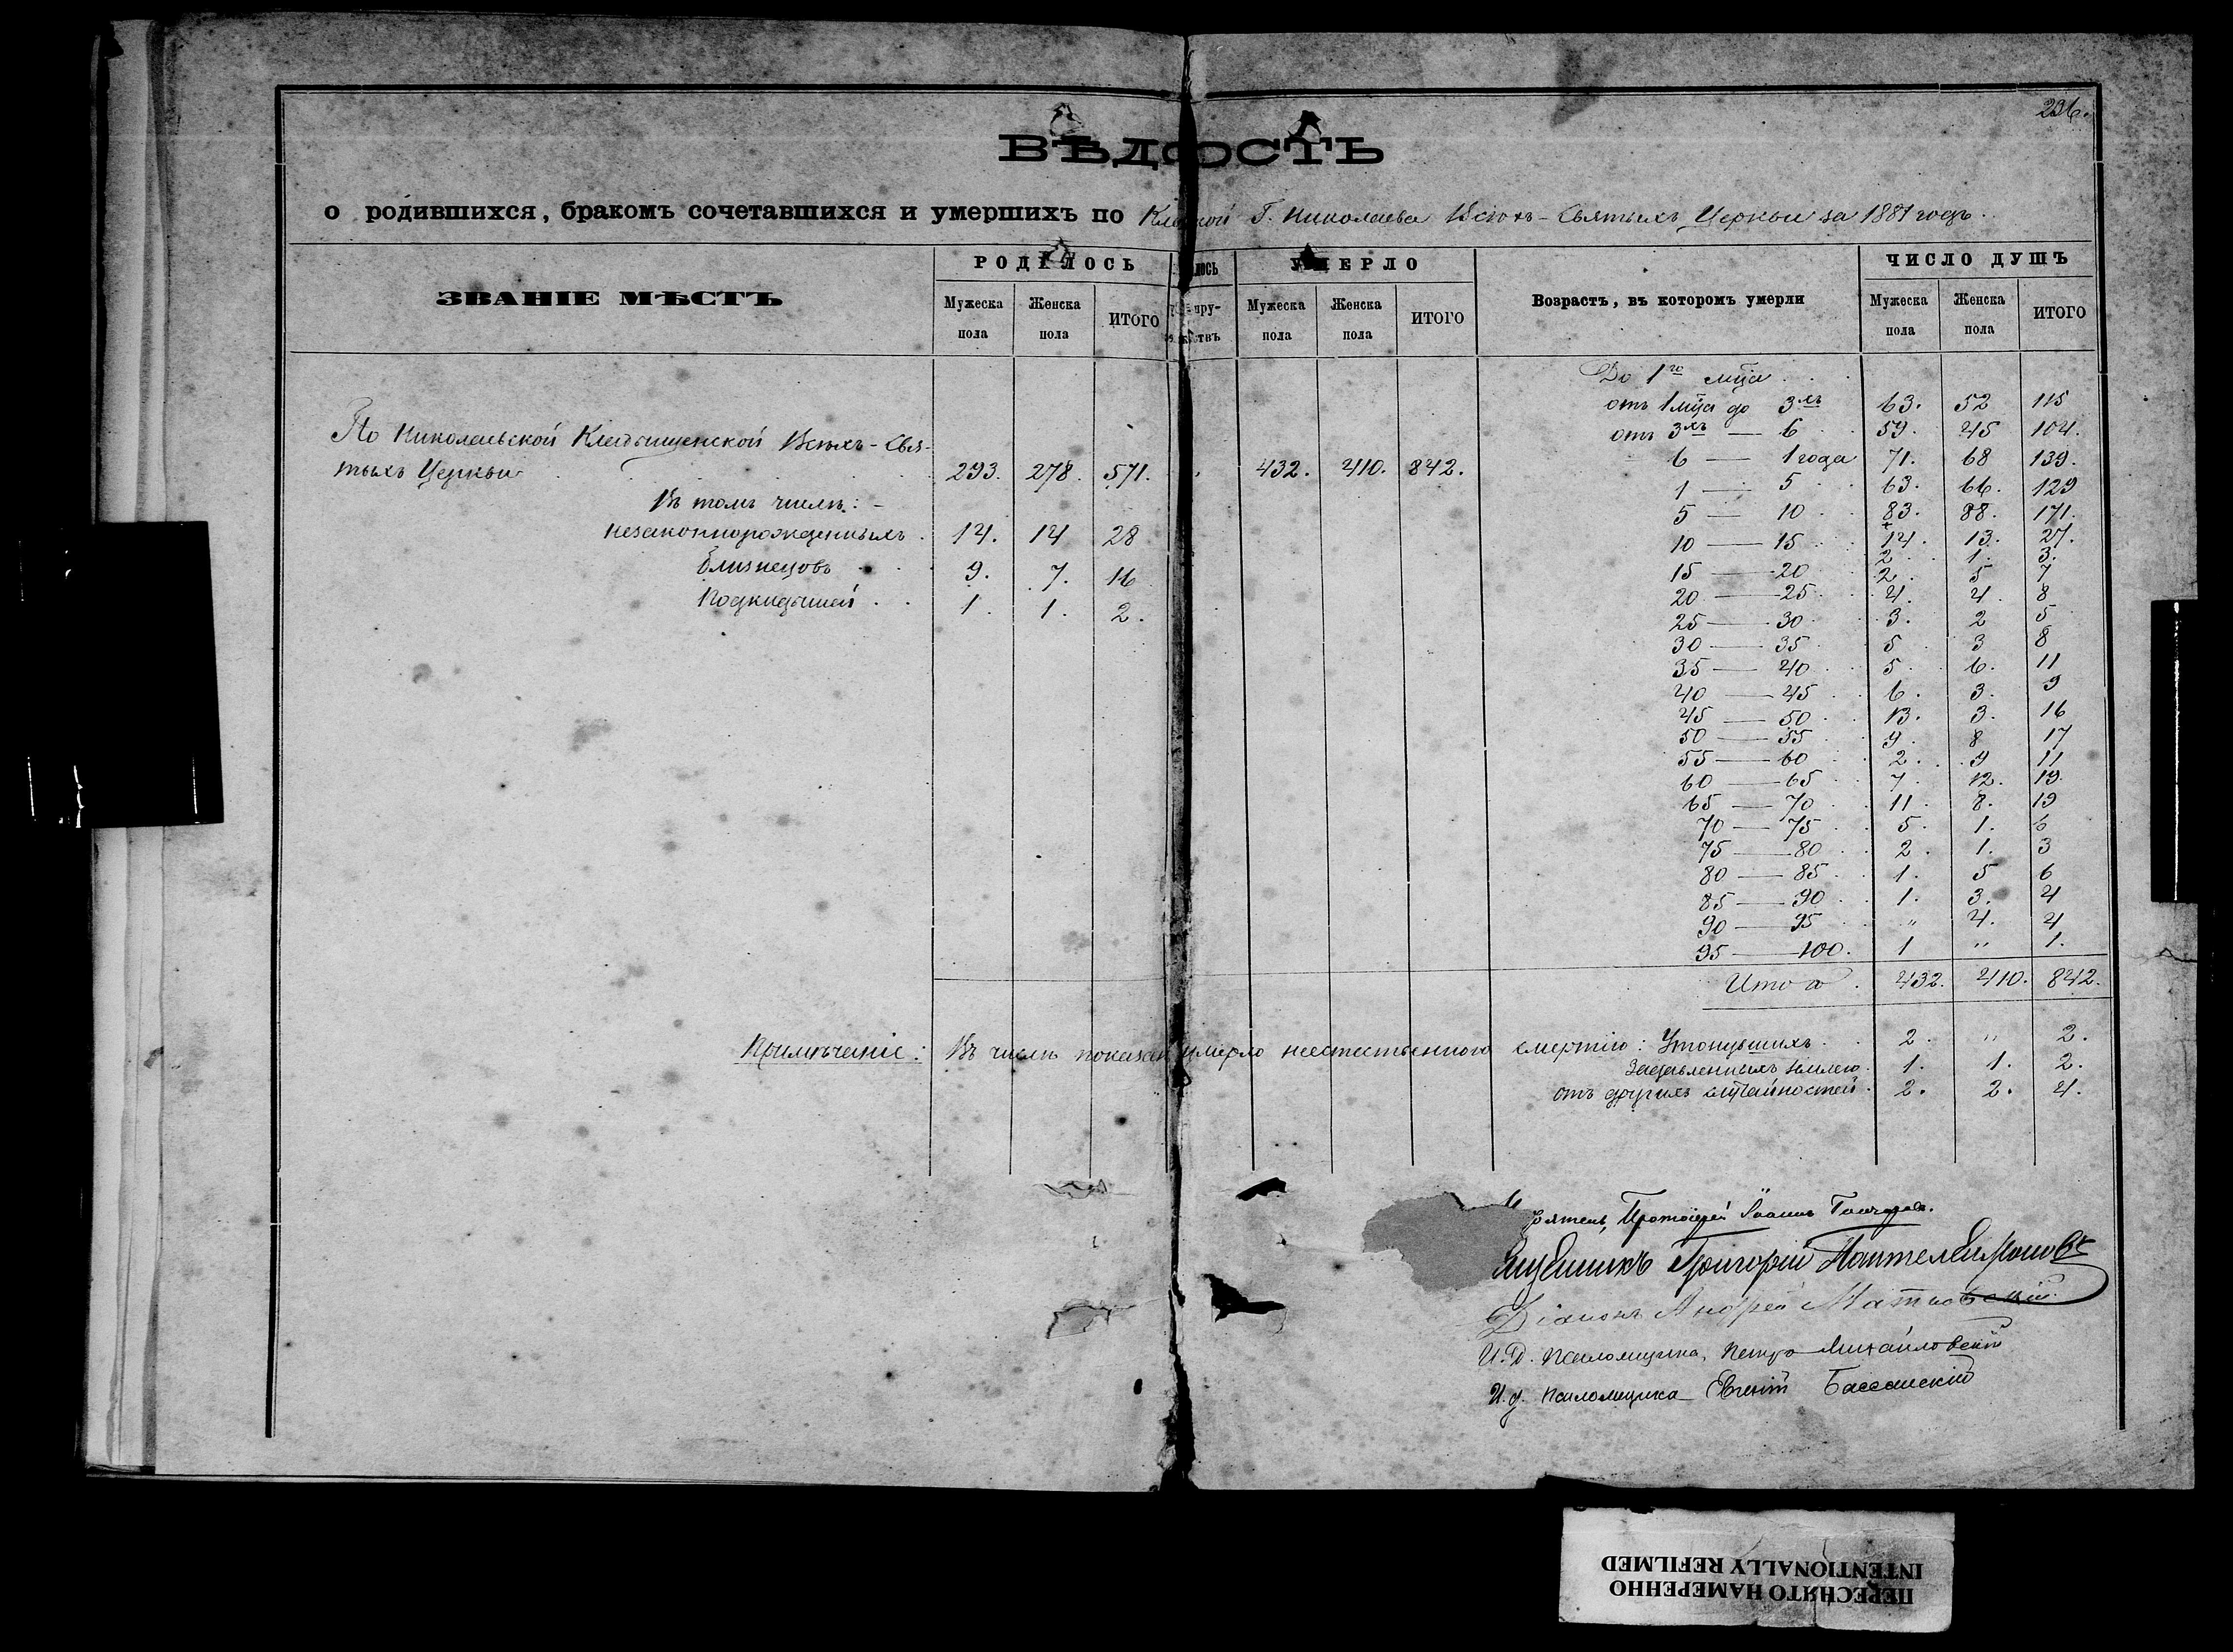 296.
ВѢДОСТЬ
о родившихся, бракомъ сочетавшихся и умершихъ по Кл кой Г. Николаева Всѣхъ-Святыхъ Церкви за 1881 годъ.
ЗВАНІЕ МѢСТЪ
РОДИЛОСЬ
Мужеска пола
Женска пола
ИТОГО
УМЕРЛО
Мужеска пола
Женска пола
ИТОГО
Возрастъ, въ которомъ умерли
ЧИСЛО ДУШЪ
Мужеска пола
Женска пола
ИТОГО
По Николаевской Кладбищенской Всѣхъ-Свя-
тыхъ Церкви 293. 278. 571. 432. 410. 842.
Въ томъ числѣ:-
незаконнорожденныхъ 14. 14 28
Близнецовъ 9. 7. 16
Подкидышей 1. 1. 2.
До 1го мца 63. 52 115
отъ 1 мца до 3хъ 59. 45 104.
отъ 3хъ — 6 71. 68 139.
6 — 1 года 63. 66. 129
1 — 5 83. 88. 171.
5 — 10 14. 13. 27.
10 — 15 2 1. 3.
15 — 20 2. 5 7
20 — 25 4. 4. 8
25 — 30 3. 2 5
30 — 35 5 3 8
35 — 40 5. 6. 11
40 — 45 6. 3. 9
45 — 50 13. 3. 16
50 — 55 9. 8 17
55 — 60 2. 9 11
60 — 65 7. 12. 19.
65 — 70 11. 8. 19
70 — 75 5. 1. 6
75 — 80 2. 1. 3
80 — 85 1. 5 6
85 — 90 1. 3. 4
90 — 95 " 4. 4
95 — 100. 1 " 1.
Итого 432. 410. 842.
Примѣчаніе: Въ числѣ показан умерло неестественною смертію: Утонувшихъ 2. " 2.
Задавленныхъ землею 1. 1. 2.
отъ другихъ случайностей 2. 2. 4.
Протоіерей Іоаннъ Гончаровъ.
Григорій Пантелеимоновъ
Діаконъ Андрей Матковскій
И.Д. Псаломщика, Петръ Михайловскій
И.д. псаломщика Евгеній
ПЕРЕСНЯТО НАМЕРЕННО
INTENTIONALLY REFILMED